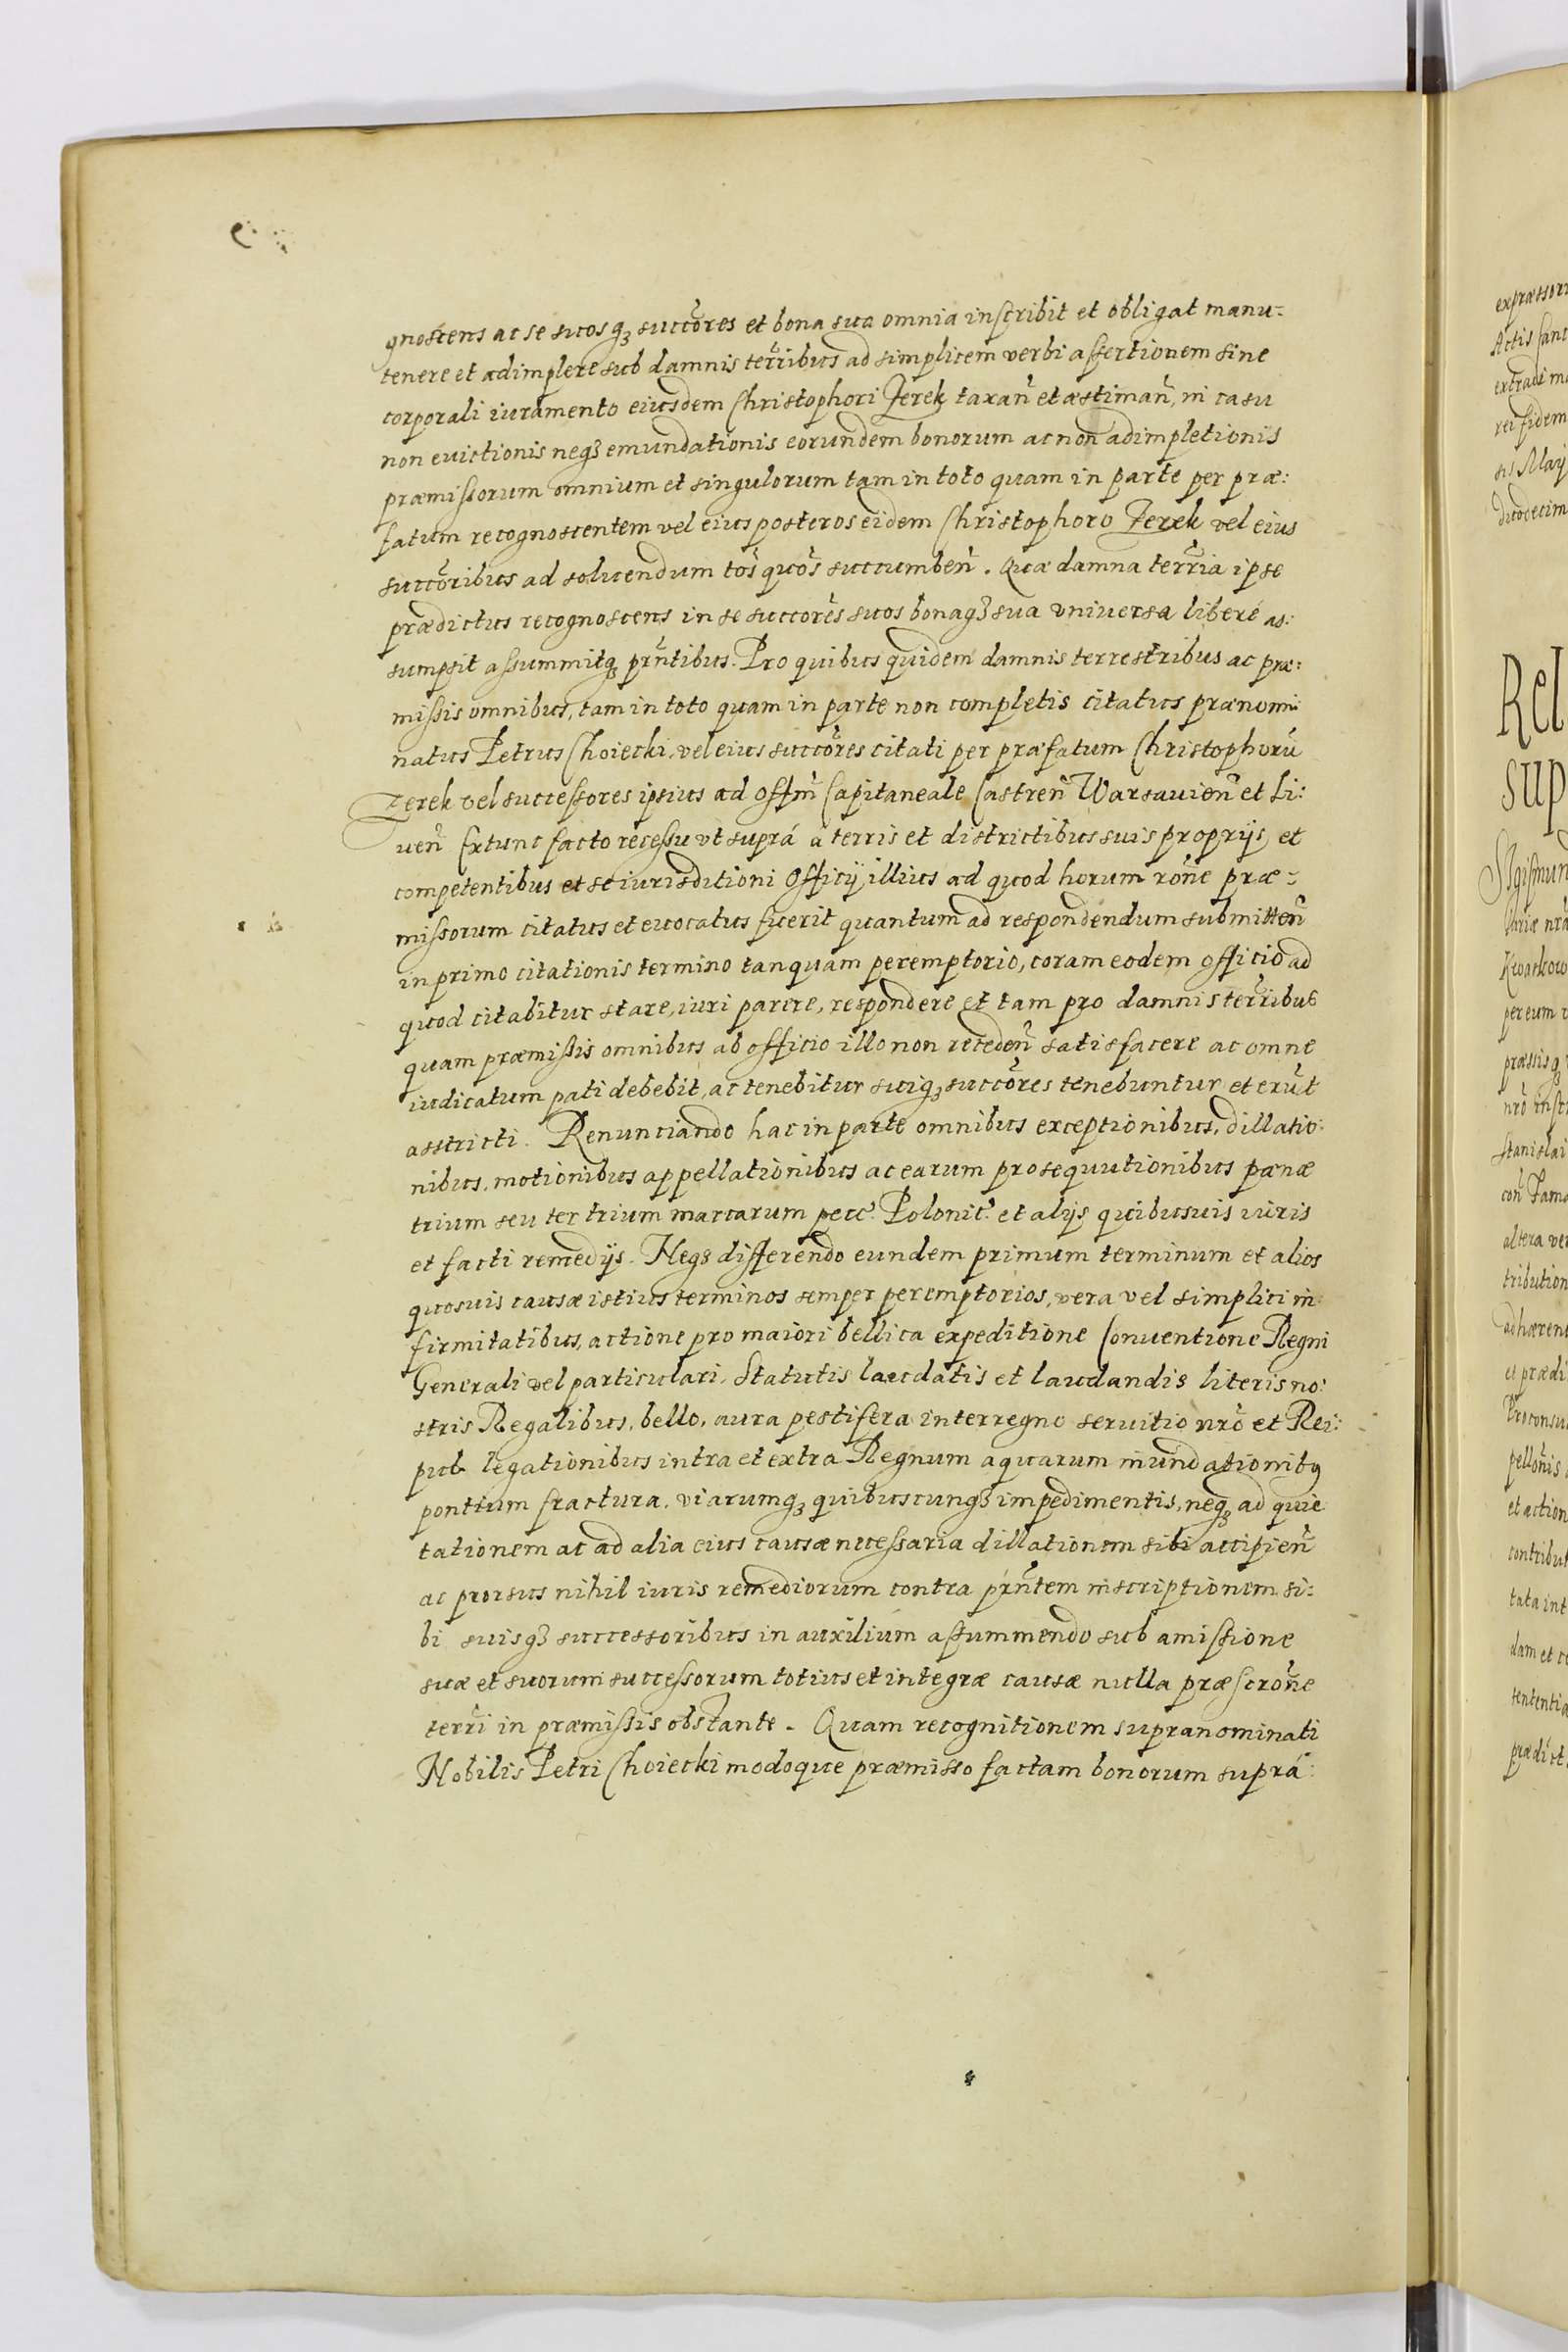 gnoscens ac se suosq₃ succ̃ores et bona sua omnia inscribit et obligat manu-
tenere et adimplere sub damnis ter̃ribus ad simplicem verbi assertionem sine
corporali iuramento eiusdem Christophori Zerek taxañ et æstimañ, in casu
non euictionis neq₃ emundationis eorundem bonorum ac non adimpletionis
præmissorum omnium et singulorum tam in toto quam in parte per præ:
fatum recognoscentem vel eius posteros eidem Christophoro Zerek vel eius
succ̃oribus ad soluendum tõs quõs succumbeñ. Quæ damna ter̃ria ipse
prædictus recognoscens in se succõres suos bonaq₃ sua vniuersa liberé as:
sumpsit assummitq₃ prñtibus. Pro quibus quidem damnis terrestribus ac præ:
missis omnibus, tam in toto quam in parte non completis citatus prænomi
natus Petrus Choiecki, vel eius succõres citati per præfatum Christophorū
Zerek vel successores ipsius ad Offm̃ Capitaneale Castreñ Warsauieñ et Li:
ueñ Extunc facto recessu vt suprá á terris et districtibus suis proprijs et
competentibus et se iurisditioni Officij illius ad quod horum rõne præ-
missorum citatus et euocatus fuerit quantum ad respondendum submitteñ
in primo citationis termino tanquam peremptorio, coram eodem officio ad
quod citabitur stare, iuri parere, respondere et tam pro damnis ter̃ribus
quam præmissis omnibus ab officio illo non recedeñ satisfacere ac omne
iudicatum pati debebit, ac tenebitur suiq₃ succõres tenebuntur et erūt
astricti. Renunciando hac in parte omnibus exceptionibus, dillatio:
nibus, motionibus appellationibus ac earum prosequutionibus pænæ
trium seu ter trium marcarum pecc̃. Polonic̃. et alijs quibusuis iuris
et facti remedijs. Neq₃ differendo eundem primum terminum et alios
quosuis causæ istius terminos semper peremptorios, vera vel simplici in:
firmitatibus, actione pro maiori bellica expeditione Conuentione Regni
Generali vel particulari, Statutis laudatis et laudandis literis no:
stris Regalibus, bello, aura pestifera interregno seruitio nrõ et Rei:
pub. legationibus intra et extra Regnum aquarum inundationibꝫ
pontium fractura, viarumq₃ quibuscunq₃ impedimentis, neq₃ ad quie
tationem ac ad alia eius causæ necessaria dillationem sibi accipieñ
ac prorsus nihil iuris remediorum contra prñtem inscriptionem si:
bi suisq₃ successoribus in auxilium assummendo sub amissione
suæ et suorum successorum totius et integræ causæ nulla præscrõne
ter̃ri in præmissis obstante. Quam recognitionem supranominati
Nobilis Petri Choiecki modoque præmisso factam bonorum suprá:
Rel
sup